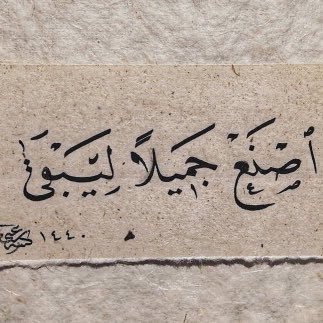 اُصْنَعْ جَمِيلاً لِيَبْقَى
١٤٤٠